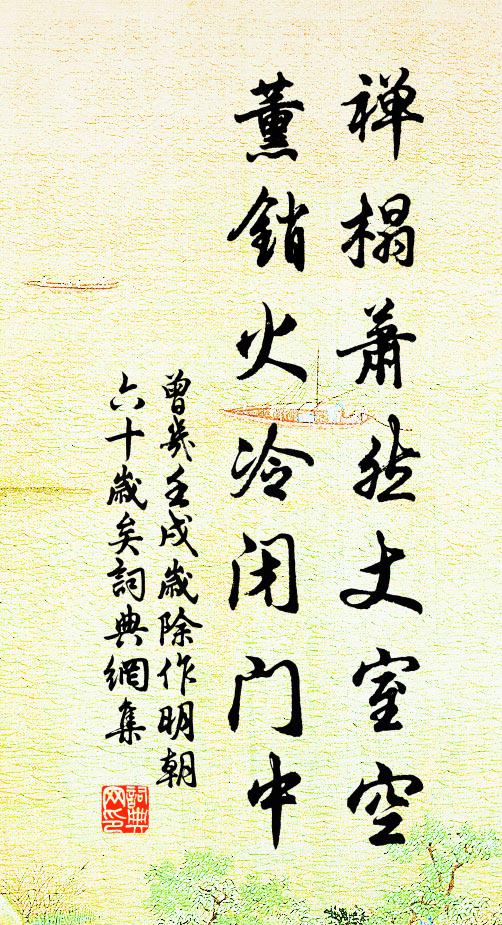 禅榻萧然丈室空
薰销火冷闭门中
曾几壬戌岁除作明朝
六十岁矣词典网集
词典
网印